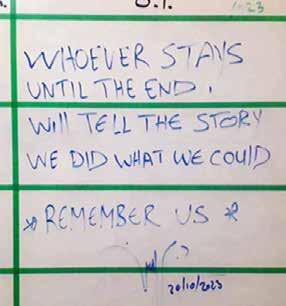 WHOEVER STAYS
UNTIL THE END,
WILL TELL THE STORY
WE DID WHAT WE COULD
* REMEMBER US *
20/10/2023